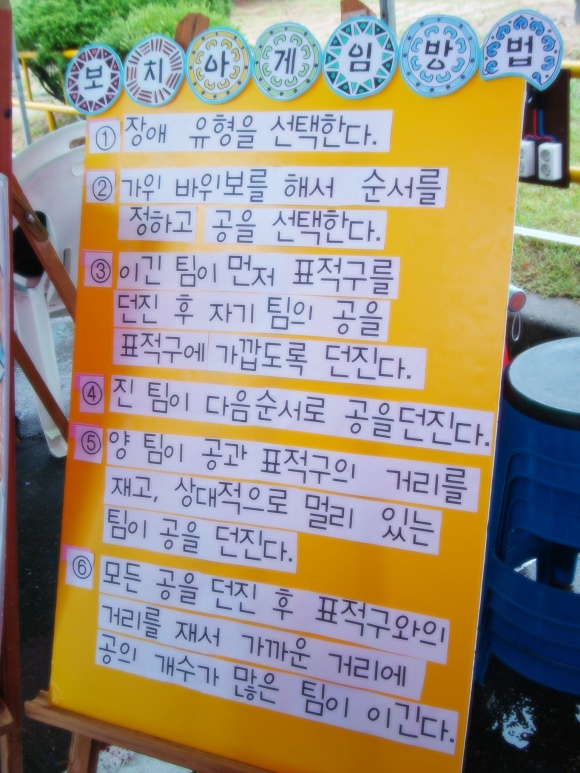 보치아게임방법
① 장애 유형을 선택한다.
② 가위 바위보를 해서 순서를
정하고 공을 선택한다.
③ 이긴 팀이 먼저 표적구를
던진 후 자기 팀의 공을
표적구에 가깝도록 던진다.
④ 진 팀이 다음순서로 공을던진다.
⑤ 양 팀이 공과 표적구의 거리를
재고, 상대적으로 멀리 있는
팀이 공을 던진다.
⑥ 모든 공을 던진 후 표적구와의
거리를 재서 가까운 거리에
공의 개수가 많은 팀이 이긴다.